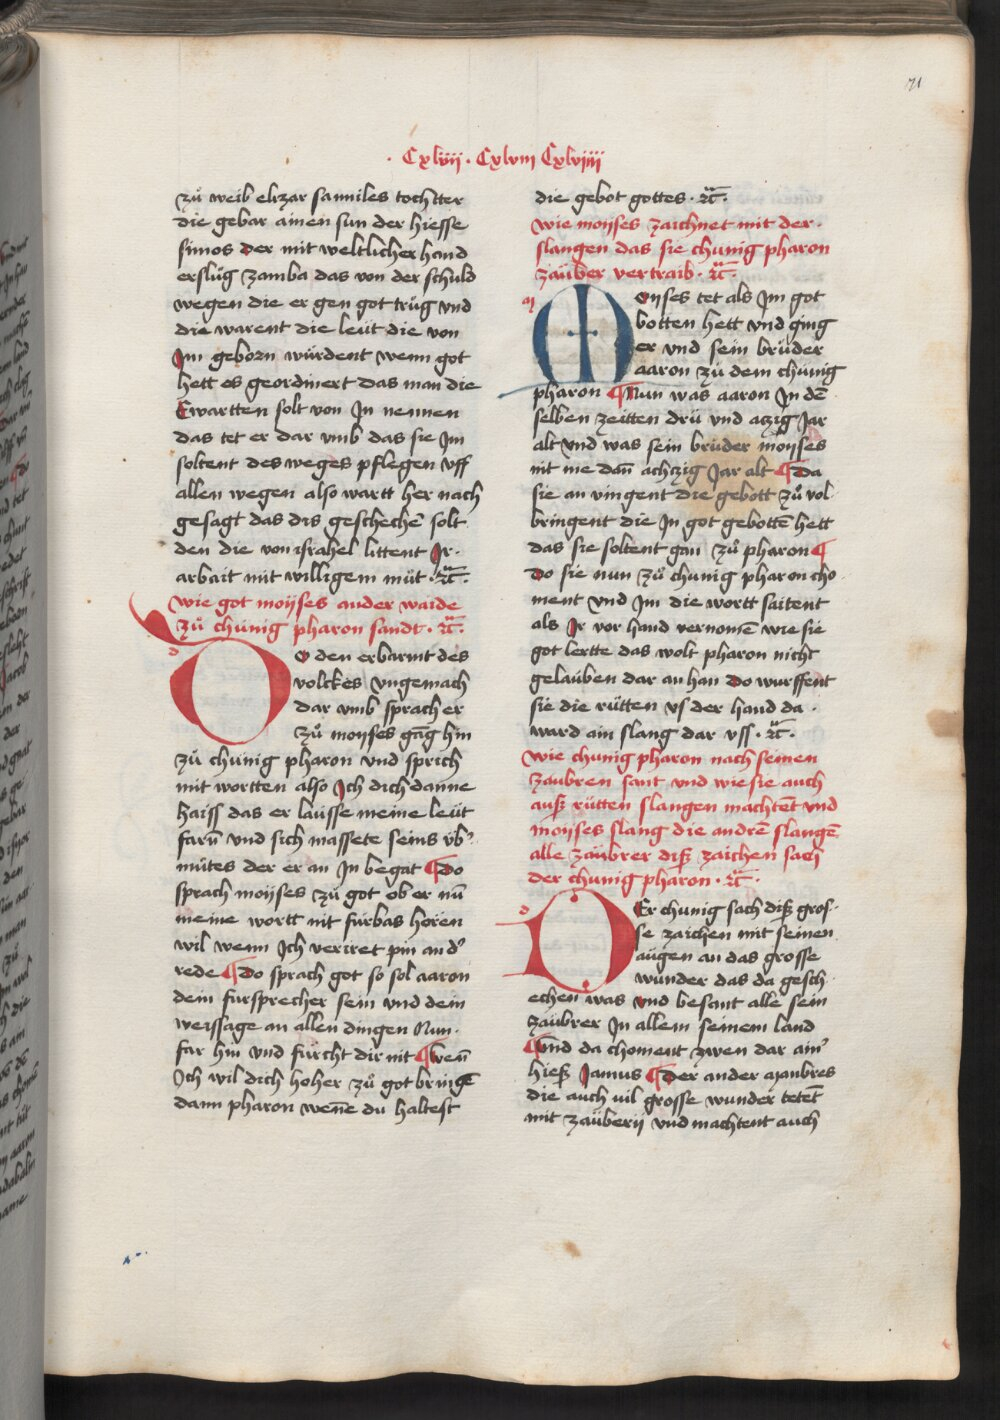 71
· Cxlvij · Cxlviij Cxlviiij
zů weib elizar samiles tochtter
die gebar ainen sun der hiesse
finios der mit weltlicher hand
erslůg zamba das von der schuld
wegen die er gen got trůg vnd
die warent die leüt die von
Im geborn würdent wenn got
hett es geordinert das man die
Ewartten solt von In nennen
das tet er dar vmb das sie Im
soltent des weges pflegen vff
allen wegen also wartt her nach
gesagt das dis geschechē solt
den die von israhel littent Ir·
arbait mit willigem müt · ꝛc̄ ·
wie got moÿses ander waide
zů chünig pharon sandt · ꝛc̄ ·
d
DO den erbarmt des
volckes vngemach
dar vmb sprach er
zů moÿses gāg hin
zů chünig pharon vnd sprich
mit wortten also Ich dich danne
haiss das er laüsse meine leüt
farn̄ vnd sich massete seins vb᾽
mütes der er an In begat ¶ Do
sprach moÿses zů got ob er nū
meine wortt nit fürbas hören
wil wenn Ich veriret pin and᾽
rede ¶ Do sprach got so sol aaron
dem fürsprecher sein vnd dein
weissage an allen dingen Nun·
far hin vnd fürcht dir nit ¶ wen̄
Ich wil dich hoher zů got bringē
dann pharon wen̄e du haltest
die gebot gottes · ꝛc̄ ·
wie moÿses zaichnet mit der·
slangen das sie chünig pharon
zaüber vertraib · ꝛc̄ ·
m
MOyses tet als Im got
botten hett vnd ging
er vnd sein brüder
aaron zů dem chünig
pharon ¶ Nun was aaron In dē
selben zeitten drü vnd aczig Jar
alt vnd was sein brüder moÿses
nit me dan̄ achczig Jar alt ¶ Da
sie an vingent die gebott zů vol
bringent die In got gebottē hett
das sie soltent gan zů pharon ¶
Do sie nun zů chünig pharon cho
ment vnd Im die wortt saitent
als Ir vor hand vernomē wie sie
got lertte das wolt pharon nicht
gelaüben dar an han Do wurffent
sie die rütten vs der hand da·
ward ain slang dar vss · ꝛc̄ ·
wie chünig pharon nach seinen
zaubren sant vnd wie sie auch
auß rütten slangen machtēt vnd
moÿses slang die andrē slangē
alle zaübrer diß zaichen sach
der chünig pharon · ꝛc̄ ·
d
DEr chünig sach diß gros·
se zaichen mit seinen
augen an das grosse
wunder das da gesch
echen was vnd besant alle sein
zaübrer In allem seinem land
¶ vnd da choment zwen dar ain᾽
hieß Jamus ¶ Der ander manbres
die auch vil grosse wunder tetēt
mit zaüberÿ vnd machtent auch